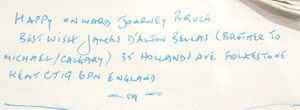 HAPPY ONWARD JOURNEY BRUCE
BEST WISH JAMES D'ALTON BELLAS (BROTHER TO
MICHAEL/CALGARY) 35 HOLLANDS AVE FOLKESTONE
KENT CT19 6PN ENGLAND